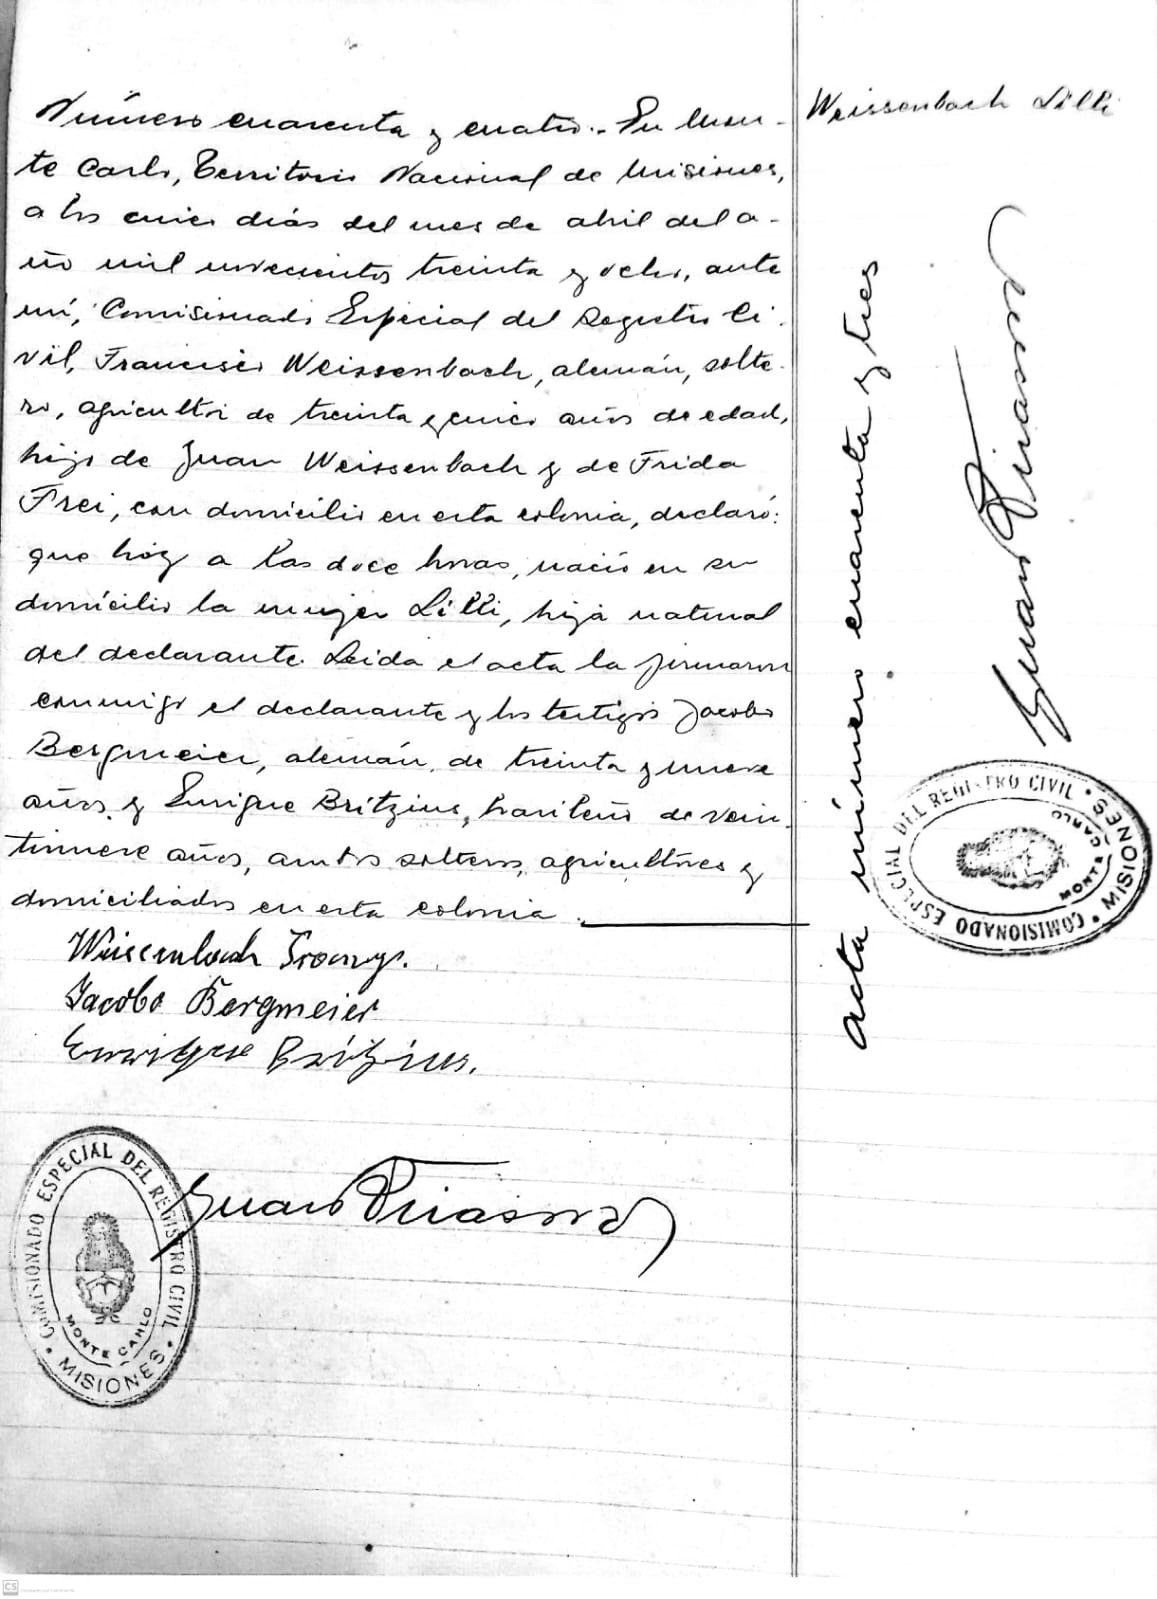 Número cuarenta y cuatro.- En Mon-
te Carlo, Territorio Nacional de Misiones,
a los cinco días del mes de abril del a-
ño mil novecientos treinta y ocho, ante
mí, Comisionado Especial del Registro Ci-
vil, Francisco Weissenbach, alemán, solte-
ro, agricultor de treinta y cinco años de edad,
hijo de Juan Weissenbach y de Frida
Frei, con domicilio en esta colonia, declaró:
que hoy a las doce horas, nació en su
domicilio la mujer Lilli, hija natural
del declarante. Leida el acta la firmaron
conmigo el declarante y los testigos Jacobo
Bergmeier, alemán, de treinta y nueve
años y Enrique Britzius, brasileño de vein-
tinueve años, ambos solteros, agricultores y
domiciliados en esta colonia.
Weissenbach Franz.
Jacobo Bergmeier
Enrique Britzius.
COMISIONADO ESPECIAL DEL REGISTRO CIVIL
MONTE CARLO
MISIONES
Weissenbach Lilli
acta número cuarenta y tres
COMISIONADO ESPECIAL DEL REGISTRO CIVIL
MONTE CARLO
MISIONES
CS